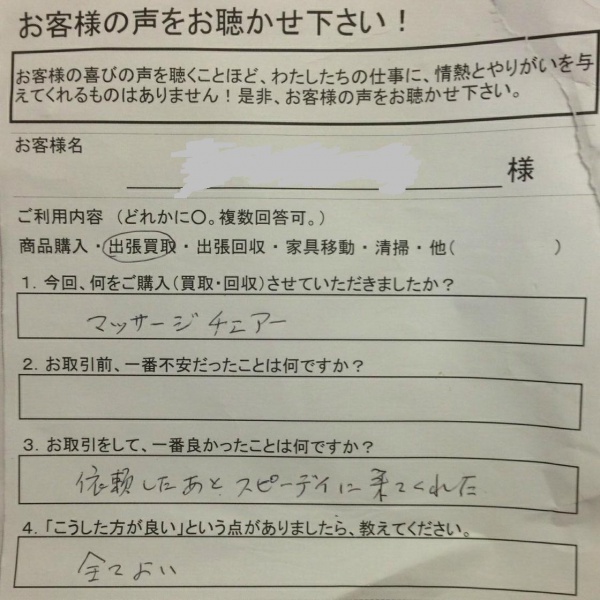 お客様の声をお聴かせ下さい！
お客様の喜びの声を聴くことほど、わたしたちの仕事に、情熱とやりがいを与
えてくれるものはありません！是非、お客様の声をお聴かせ下さい。
お客様名
様
ご利用内容 （どれかに〇。複数回答可。）
商品購入・出張買取・出張回収・家具移動・清掃・他（ ）
1. 今回、何をご購入（買取・回収）させていただきましたか？
マッサージチェアー
2. お取引前、一番不安だったことは何ですか？
3. お取引をして、一番良かったことは何ですか？
依頼したあとスピーディに来てくれた
4. 「こうした方が良い」という点がありましたら、教えてください。
全てよい